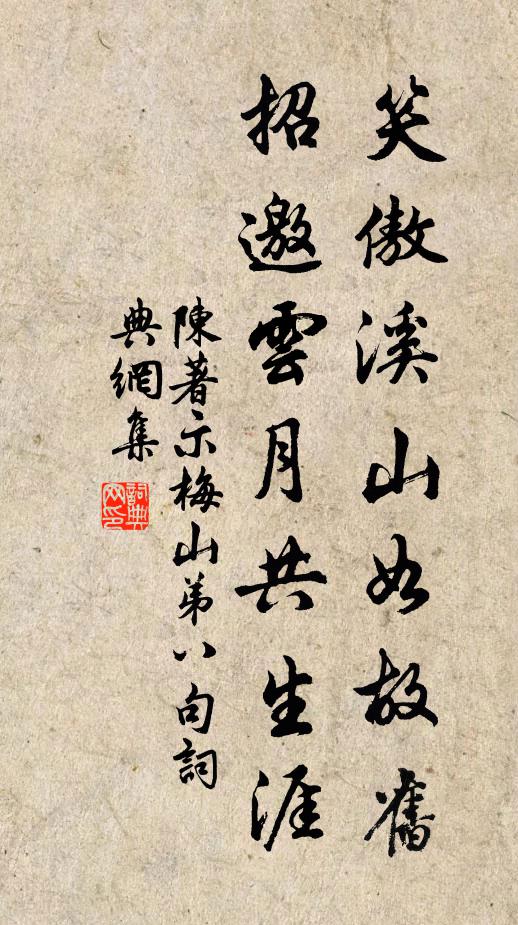 笑傲溪山如故舊
招邀雲月共生涯
陳著示梅山弟八句詞
典網集
詞典網印